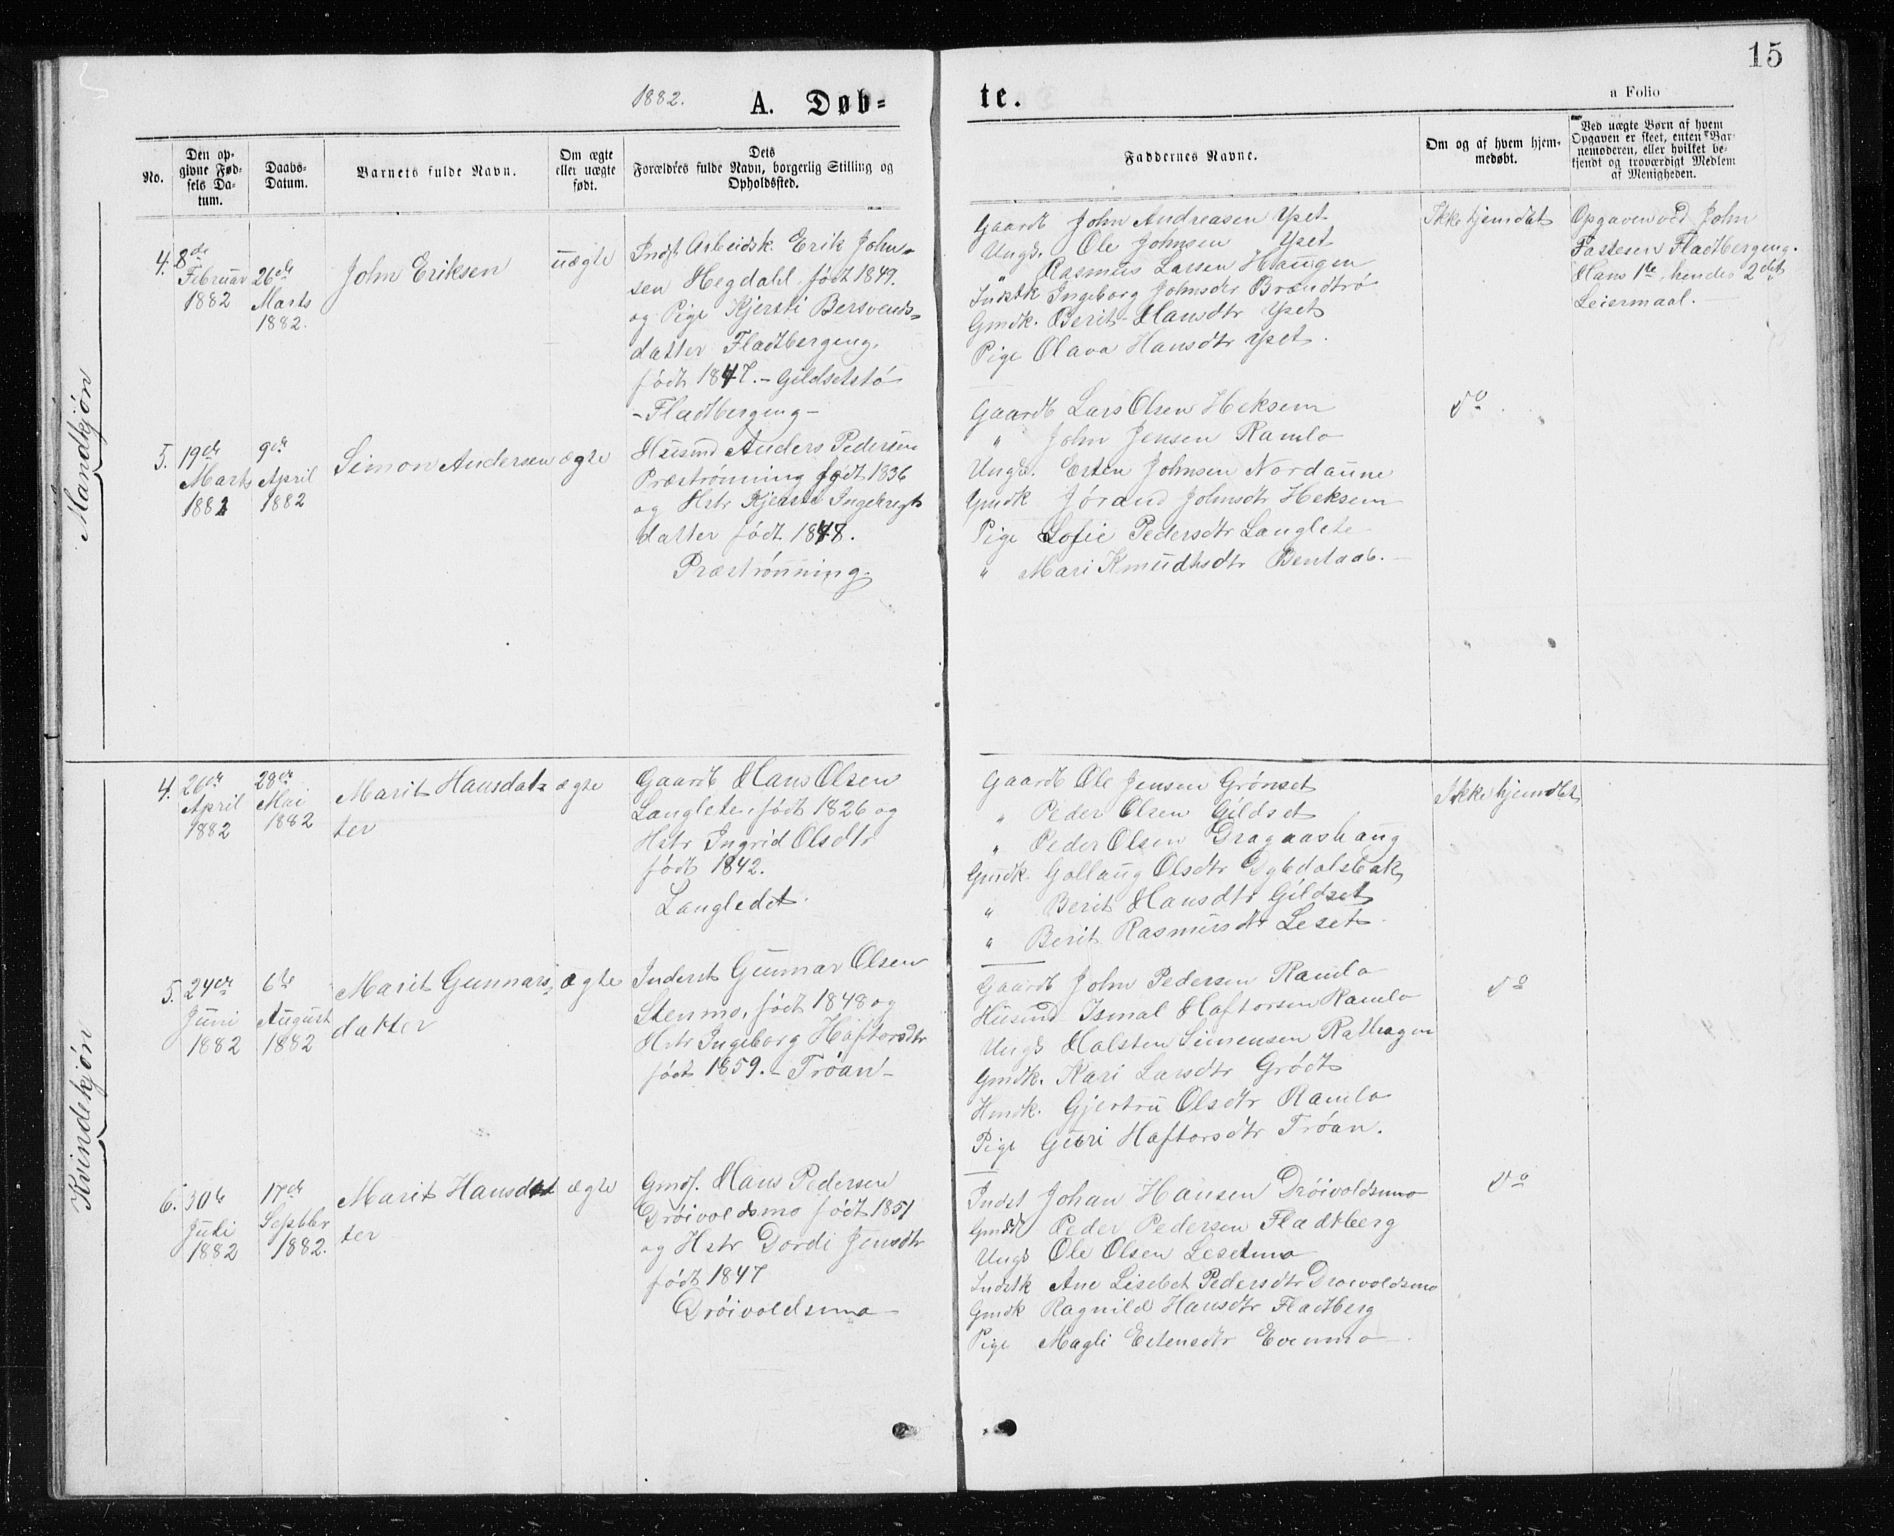 15
1882.
A. Døb=
te.
a Folio
No.
Den op-
givne Fød-
sels Da-
tum.
Daabs-
Datum.
Barnets fulde Navn.
Om ægte
eller uægte
født.
Dets
Forældres fulde Navn, borgerlig Stilling og
Opholdssted.
Faddernes Navne.
Om og af hvem hjem-
medøbt.
Ved uægte Børn af hvem
Opgaven er skeet, enten Bar-
nemoderen, eller hvilket be-
kjendt og troværdigt Medlem
af Menigheden.
Mandkjøn
4. 8de
Februar
1882
26de
Marts
1882.
John Eriksen
uægte
Indst. Arbeidsk. Erik John=
sen Hegdahl, født 1849.
og Pige Kjersti Bersvends=
datter Fladtbergeng,
født 1847. – Gildsetstø
– Fladtbergeng –
Gaardb John Andreasen Ypset
Ungk. Ole Johnsen Ypset
" Rasmus Larsen Haugen
Indstk Ingeborg Johnsdr Brændtrø
Gmdk. Berit Hansdtr Ypset
Pige Olava Hansdtr Ypset.
Ikke hjemdøbt
Opgaven ved John
Fastesen Fladtbergeng.
Hans 1te, hendes 2det
Leiermaal.
5. 19de
Marts
1882
9de
April
1882
Simon Andersen
ægte
Husmd Anders Pedersen
Præstrønning født 1836
og Hstr Kjersti Ingebrigt
datter født 1848.
Præstrønning.
Gaardb Lars Olsen Heksem
" John Jensen Ramlo
Ungk. Esten Johnsen Nordaune
Gmdk Jørand Johnsdtr Heksem
Pige Sofie Pedersdtr Langlete
" Mari Knudtsdtr Bentaas. –
Do
Kvindekjøn
4. 26de
April
1882
28de
Mai
1882
Marit Hansdat=
ter
ægte
Gaardb Hans Olsen
Langlete, født 1826 og
Hstr Ingrid Olsdtr
født 1842.
Langledet.
Gaardb Ole Jensen Grønset
" Peder Olsen Gildset
" Peder Olsen Graaashaug
Gmdk. Gollaug Olsdtr Dybdalsbak
" Berit Hansdtr Gildset
" Berit Rasmusdtr Leset
Ikke hjemdøbt
5. 24de
Juni
1882
6te
August
1882
Marit Gunnars=
datter
ægte
Inderst Gunnar Olsen
Stenmo, født 1848 og
Hstr Ingeborg Haftorsdtr
født 1859. – Trøan –
Gaardb John Pedersen Ramlo
Husmd Ismal Haftorsen Ramlo
Ungk Halsten Simensen Rathagen
Gmdk. Kari Larsdtr Grødt
Hmdk. Gjertru Olsdtr Ramlo
Pige Guri Haftorsdtr Trøan.
Do
6. 30te
Juli
1882
17de
Septbr
1882.
Marit Hansdat
ter
ægte
Gmdf. Hans Pedersen
Drøivoldsmo født 1851
og Hstr Dordi Jensdtr
født 1847
Drøivoldsmo
Indst Johan Hansen Drøivoldsmo
Gmdf Peder Pedersen Fladtberg
Ungk Ole Olsen Lesetmo
Indstk Ane Lisebet Pedersdtr Drøivoldsmo
Gmdk Ragnild Hansdtr Fladtberg
Pige Magli Estensdtr Evenmo
Do